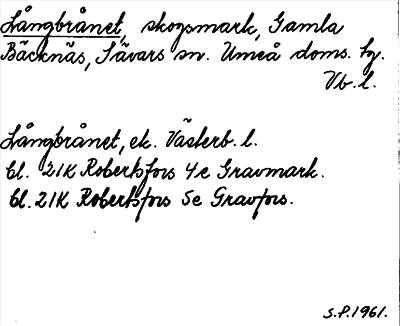 Långbrånet, skogsmark, Gamla
Bäcknäs, Sävars sn. Umeå doms. tg.
Vb. l.
Långbrånet, ek. Västerb. l.
bl. 21K Robertsfors 4e Gravmark.
bl. 21K Robertsfors 5e Gravfors.
S.P. 1961.